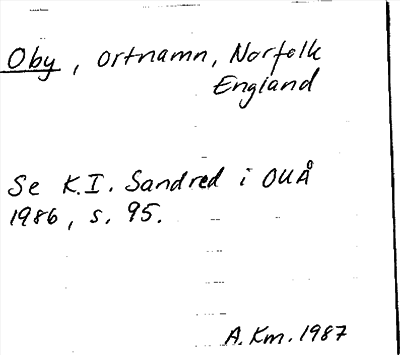 Oby, ortnamn, Norfolk
England
Se K.I. Sandred i OUÅ
1986, s. 95.
A.Km. 1987